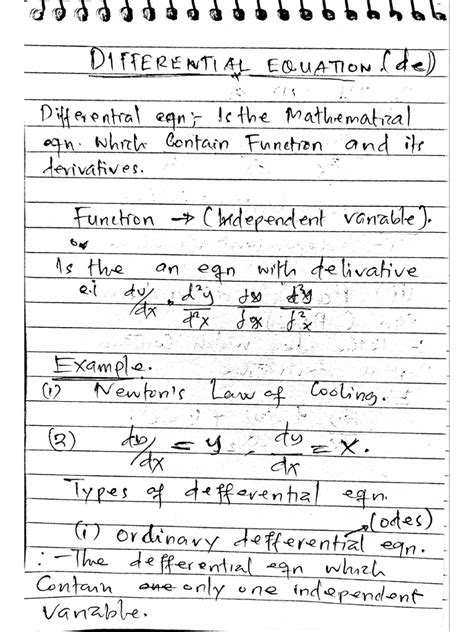 DIFFERENTIAL EQUATION (de)
Differential eqn;- Is the Mathematical
eqn. which Contain Function and its
derivatives.
Function → (Independent variable).
or
Is the an eqn with delivative
e.i dy/dx, d²y/d²x
Example.
(1) Newton's Law of Cooling.
(2) dy/dx = y, dy/dx = x.
Types of defferential eqn.
(odes)
(i) ordinary defferential eqn.
:- The defferential eqn which
Contain only one independent
variable.